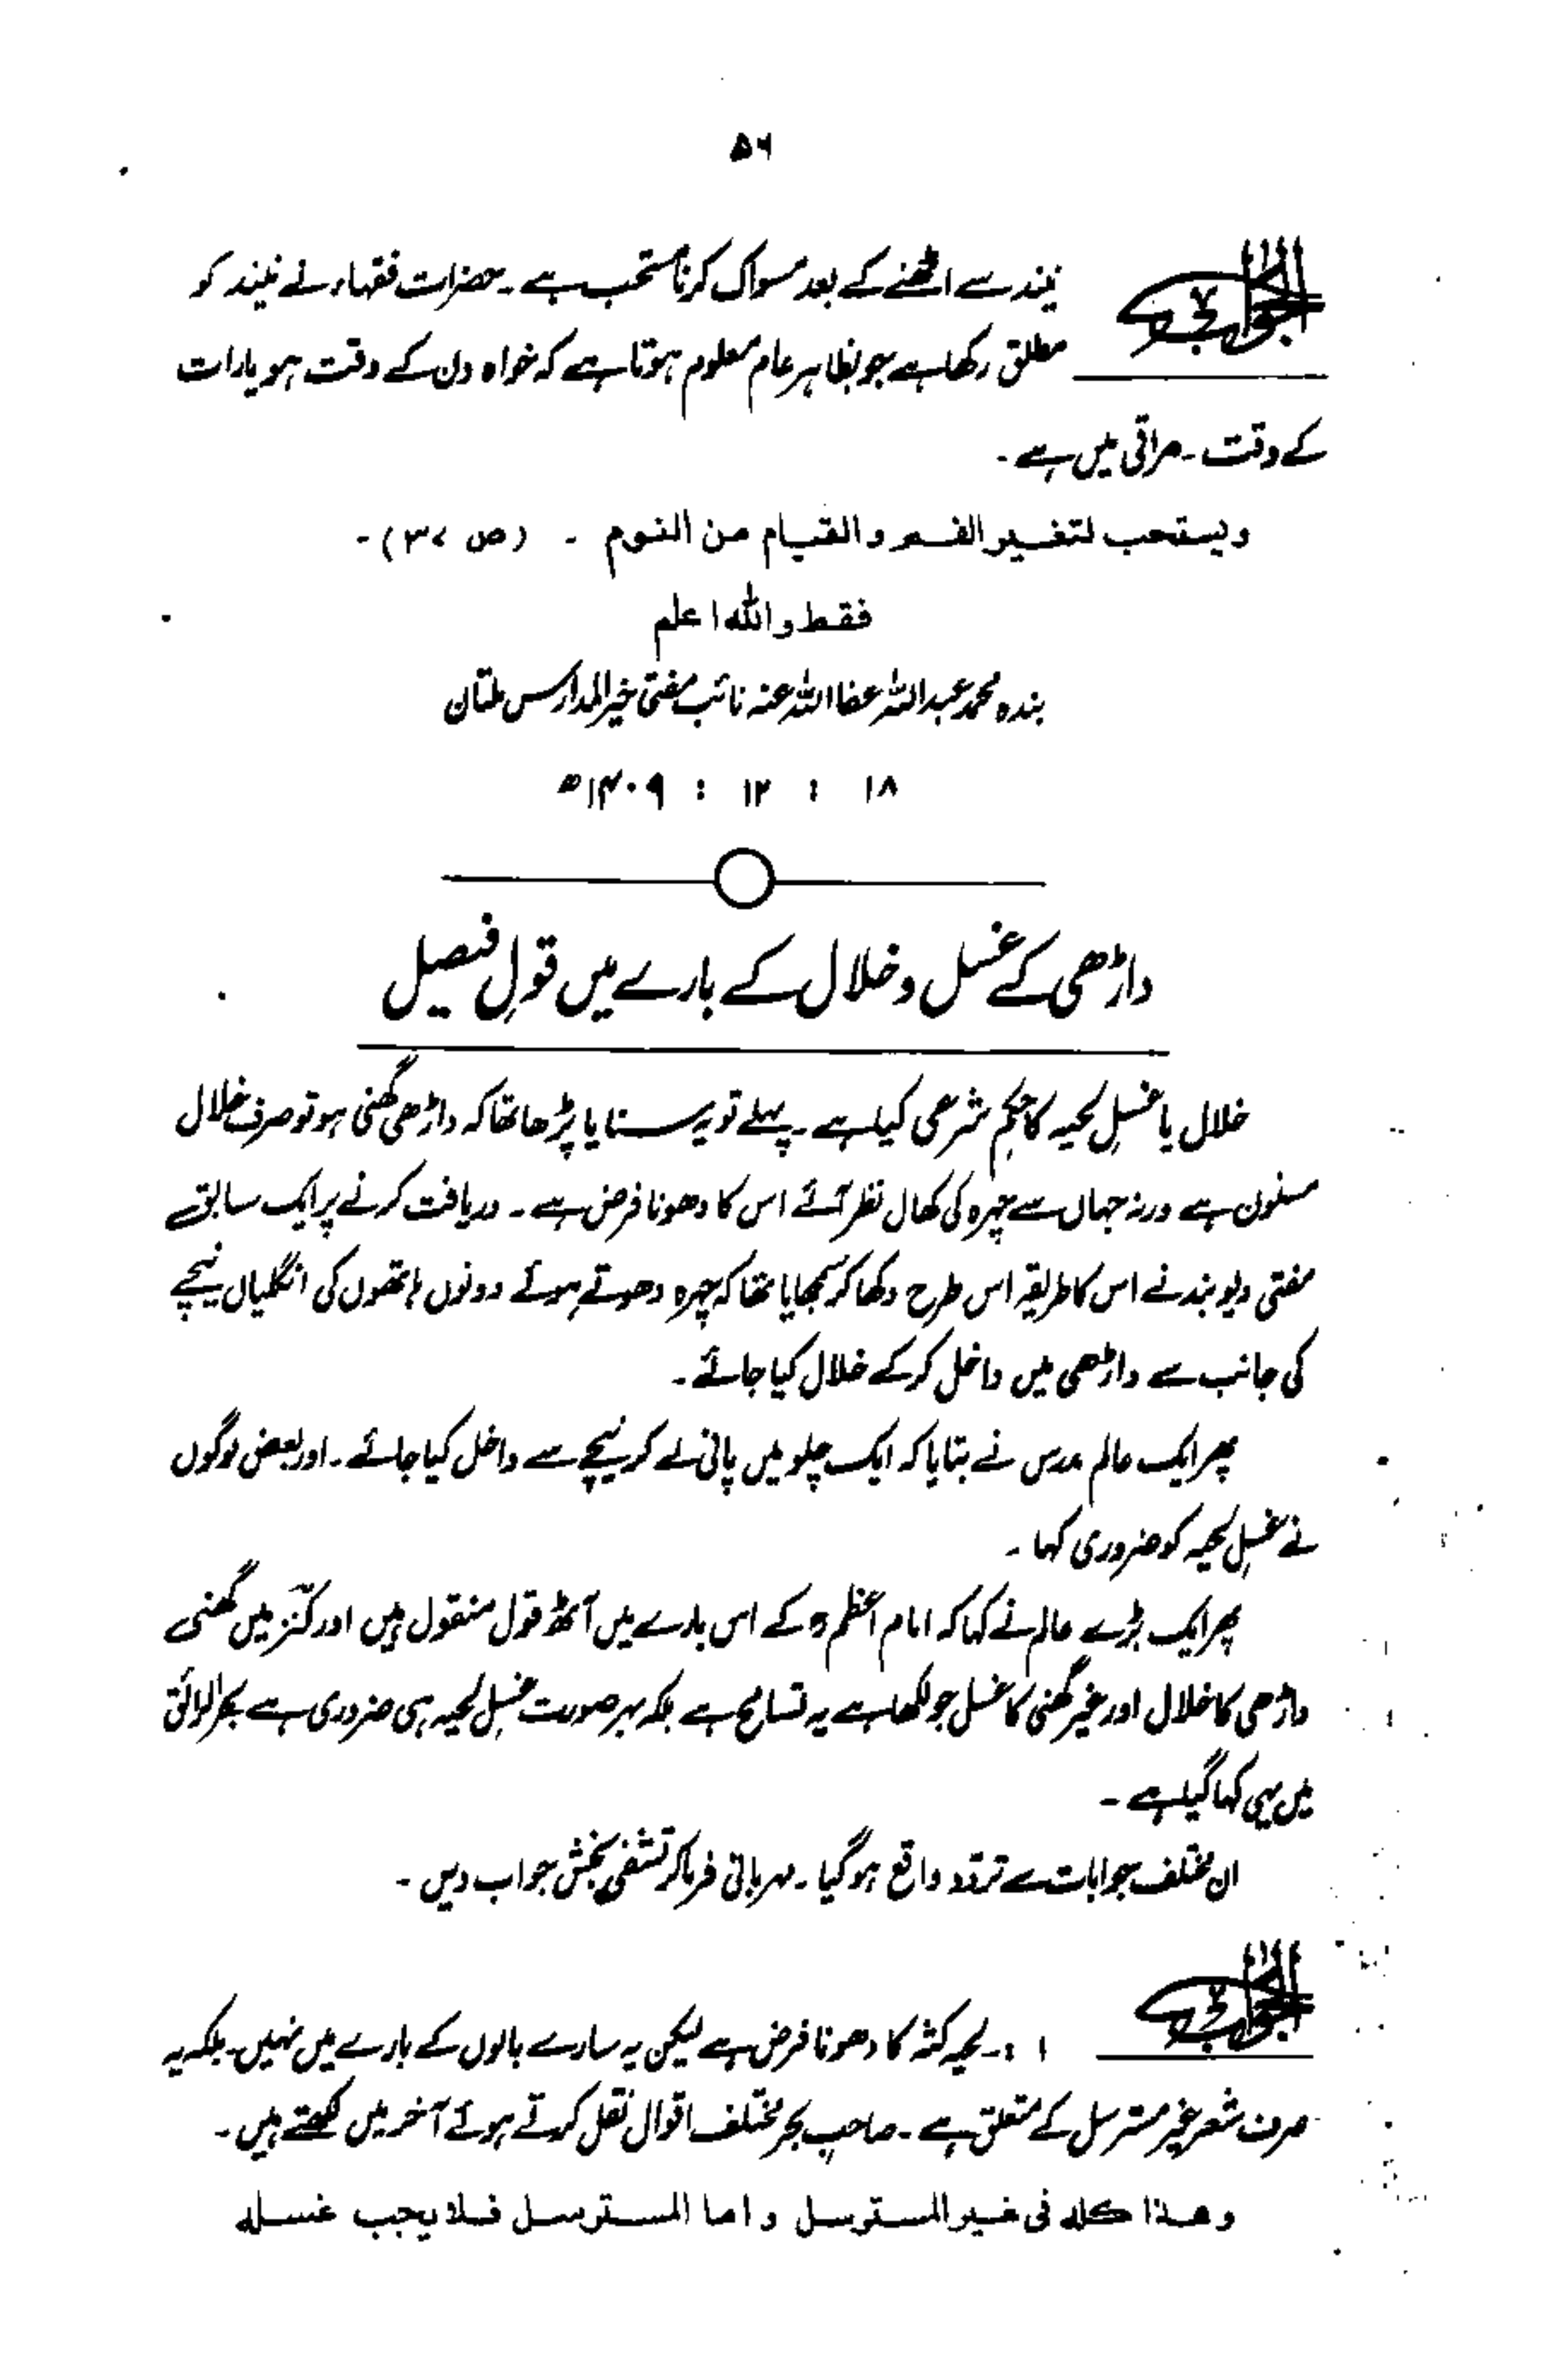 ۵۶
الجواب نیند سے اٹھنے کے بعد مسواک کرنا مستحب ہے ۔ حضرات فقہاء نے نیند کو
مطلق رکھا ہے جو بظاہر عام معلوم ہوتا ہے کہ خواہ دن کے وقت ہو یا رات
کے وقت ۔ مراقی میں ہے ۔
ویستحب لتغیر الفم والقیام من النوم ۔ (ص ۳۷) ۔
فقط واللہ اعلم
بندہ محمد عبداللہ عفا اللہ عنہ نائب مفتی خیر المدارس ملتان
۱۸ : ۱۲ : ۱۴۰۹ھ
داڑھی کے غسل و خلال کے بارے میں قولِ فیصل
خلال یا غسلِ لحیہ کا حکم شرعی کیا ہے ۔ پہلے تو یہ سنا یا پڑھا تھا کہ داڑھی گھنی ہو تو صرف خلال
مسنون ہے ورنہ جہاں سے چہرہ کی کھال نظر آئے اس کا دھونا فرض ہے ۔ دریافت کرنے پر ایک سابقے
مفتی دیوبند نے اس کا طریقہ اس طرح دکھا کر سمجھایا تھا کہ چہرہ دھوتے ہوئے دونوں ہاتھوں کی انگلیاں نیچے
کی جانب سے داڑھی میں داخل کر کے خلال کیا جائے ۔
پھر ایک عالم مدرس نے بتایا کہ ایک چلو میں پانی لے کر نیچے سے داخل کیا جائے ۔ اور بعض لوگوں
نے غسلِ لحیہ کو ضروری کہا ۔
پھر ایک بڑے عالم نے کہا کہ امام اعظمؒ کے اس بارے میں آٹھ قول منقول ہیں اور کنز میں گھنی
داڑھی کا خلال اور غیر گھنی کا غسل جو لکھا ہے یہ تسامح ہے بلکہ بہر صورت غسلِ لحیہ ہی ضروری ہے بحر الرائق
میں یہی کہا گیا ہے ۔
ان مختلف جوابات سے تردّد واقع ہو گیا ۔ مہربانی فرما کر تشفی بخش جواب دیں ۔
الجواب ۱ :۔ لحیہ کثہ کا دھونا فرض ہے لیکن یہ سارے بالوں کے بارے میں نہیں ۔ بلکہ یہ
صرف شعر غیر مسترسل کے متعلق ہے ۔ صاحبِ بحر مختلف اقوال نقل کرتے ہوئے آخر میں لکھتے ہیں ۔
وهذا كله فى غير المسترسل واما المسترسل فلا يجب غسله